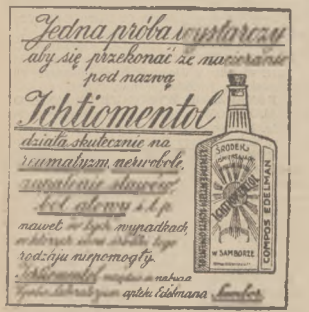 Jedna próba wystarczy
aby się przekonać że nacieranie
pod nazwą
Ichtiomentol
działa skutecznie na
reumatyzm, nerwobole,
zapalenie stawów,
ból głowy i t.p.
nawet w tych wypadkach,
w których inne środki tego
rodzaju niepomogły.
Ichtiomentol
apteki Edelmana Sambor.
ŚRODEK
ICHTIOMENTOL
W SAMBORZE
COMPOS EDELMAN